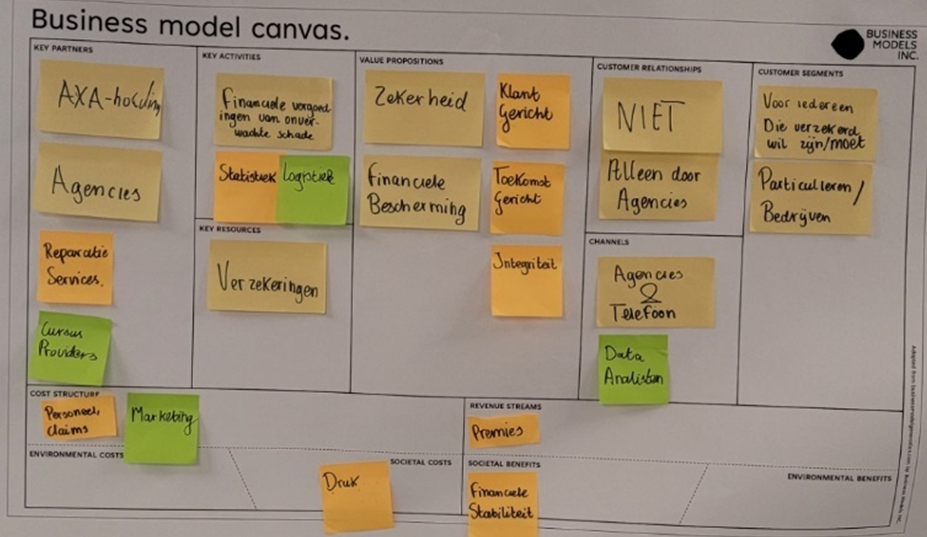 Business model canvas.
BUSINESS
MODELS
INC.
KEY PARTNERS
AXA-holding
Agencies
Reparatie
Services.
Cursus
Providers
KEY ACTIVITIES
Financiele vergoed
ingen van onver-
wachte schade
Statistiek
Logistiek
KEY RESOURCES
Verzekeringen
VALUE PROPOSITIONS
Zekerheid
Klant
Gericht
Financiele
Bescherming
Toekomst
Gericht
Integriteit
CUSTOMER RELATIONSHIPS
NIET
Alleen door
Agencies
CHANNELS
Agencies
&
Telefoon
Data
Analisten
CUSTOMER SEGMENTS
Voor iedereen
Die verzekerd
wil zijn/moet
Particulieren/
Bedrijven
COST STRUCTURE
Personeel,
claims
Marketing
REVENUE STREAMS
Premies
ENVIRONMENTAL COSTS
SOCIETAL COSTS
Druk
SOCIETAL BENEFITS
Financiele
Stabiliteit
ENVIRONMENTAL BENEFITS